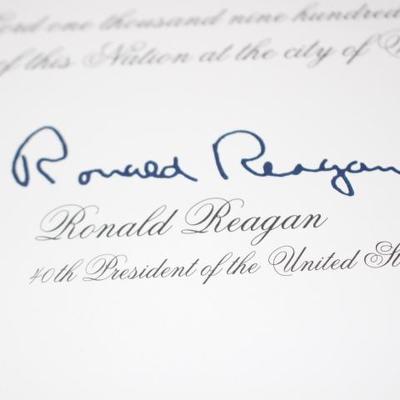 ord one thousand nine hundred
of this Nation at the city of
Ronald Reagan
Ronald Reagan
40th President of the United St